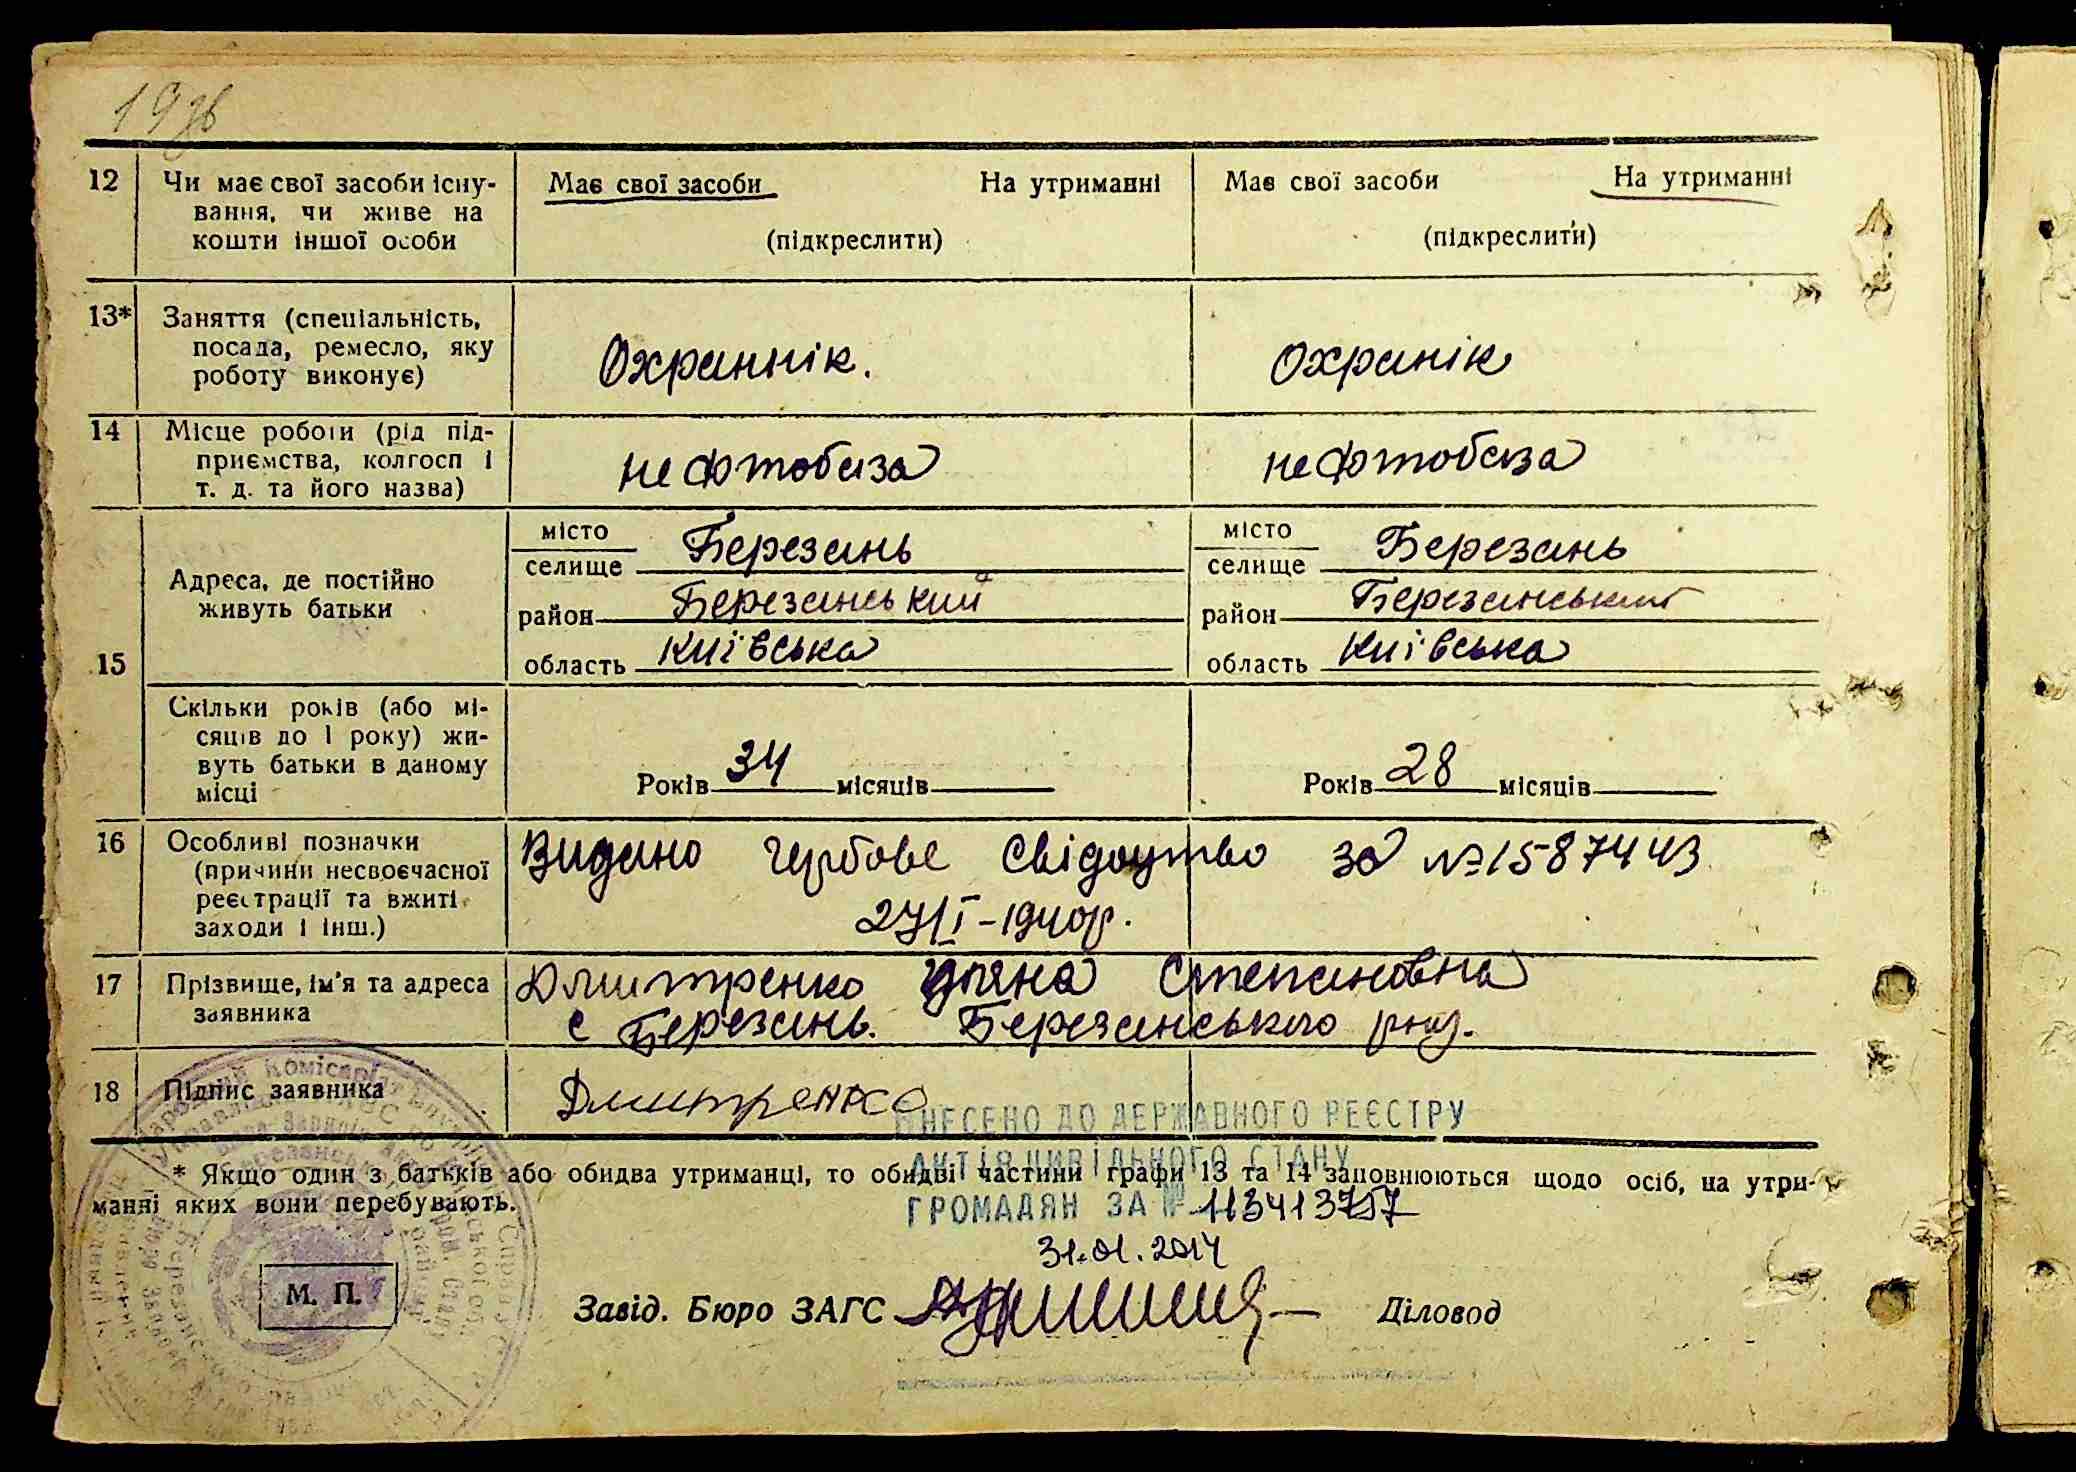 12 Чи має свої засоби існу-
вання, чи живе на
кошти іншої особи
Має свої засоби На утриманні
(підкреслити)
Має свої засоби На утриманні
(підкреслити)
13* Заняття (спеціальність,
посада, ремесло, яку
роботу виконує)
Охраннік.
Охранік
14 Місце роботи (рід під-
приємства, колгосп і
т. д. та його назва)
нефтобаза
нефтобаза
15 Адреса, де постійно
живуть батьки
місто
селище Березань
район Березанський
область Київська
місто
селище Березань
район Березанський
область Київська
Скільки років (або мі-
сяців до 1 року) жи-
вуть батьки в даному
місці
Років 34 місяців
Років 28 місяців
16 Особливі позначки
(причини несвоєчасної
реєстрації та вжиті
заходи і інш.)
Видано гербове свідоцтво за №1587443
27/I-1940р.
17 Прізвище, ім'я та адреса
заявника
Дмитренко Степановна
с Березань. Березанського рну.
18 Підпис заявника
Дмитренко
ВНЕСЕНО ДО ДЕРЖАВНОГО РЕЄСТРУ
АКТІВ ЦИВІЛЬНОГО СТАНУ
ГРОМАДЯН ЗА № 113413757
31.01.2014
* Якщо один з батьків або обидва утриманці, то обидві частини графи 13 та 14 заповнюються щодо осіб, на утри-
манні яких вони перебувають.
М. П.
Завід. Бюро ЗАГС Діловод